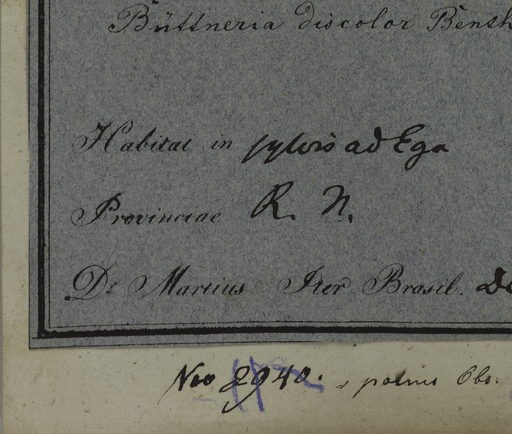 Büttneria discolor Benth
Habitat in sylvis ad Ega
Provinciae R. N.
Dr Martius Iter Brasil.
No 2940. Obs.